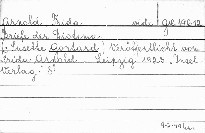 Arnold Frida. vide: Qe 190.12
Briefe der Diotima
f. Susette Gontard. Veröffentlicht von
Frida Arnold. Leipzig 1923. Insel
Verlag. 8°